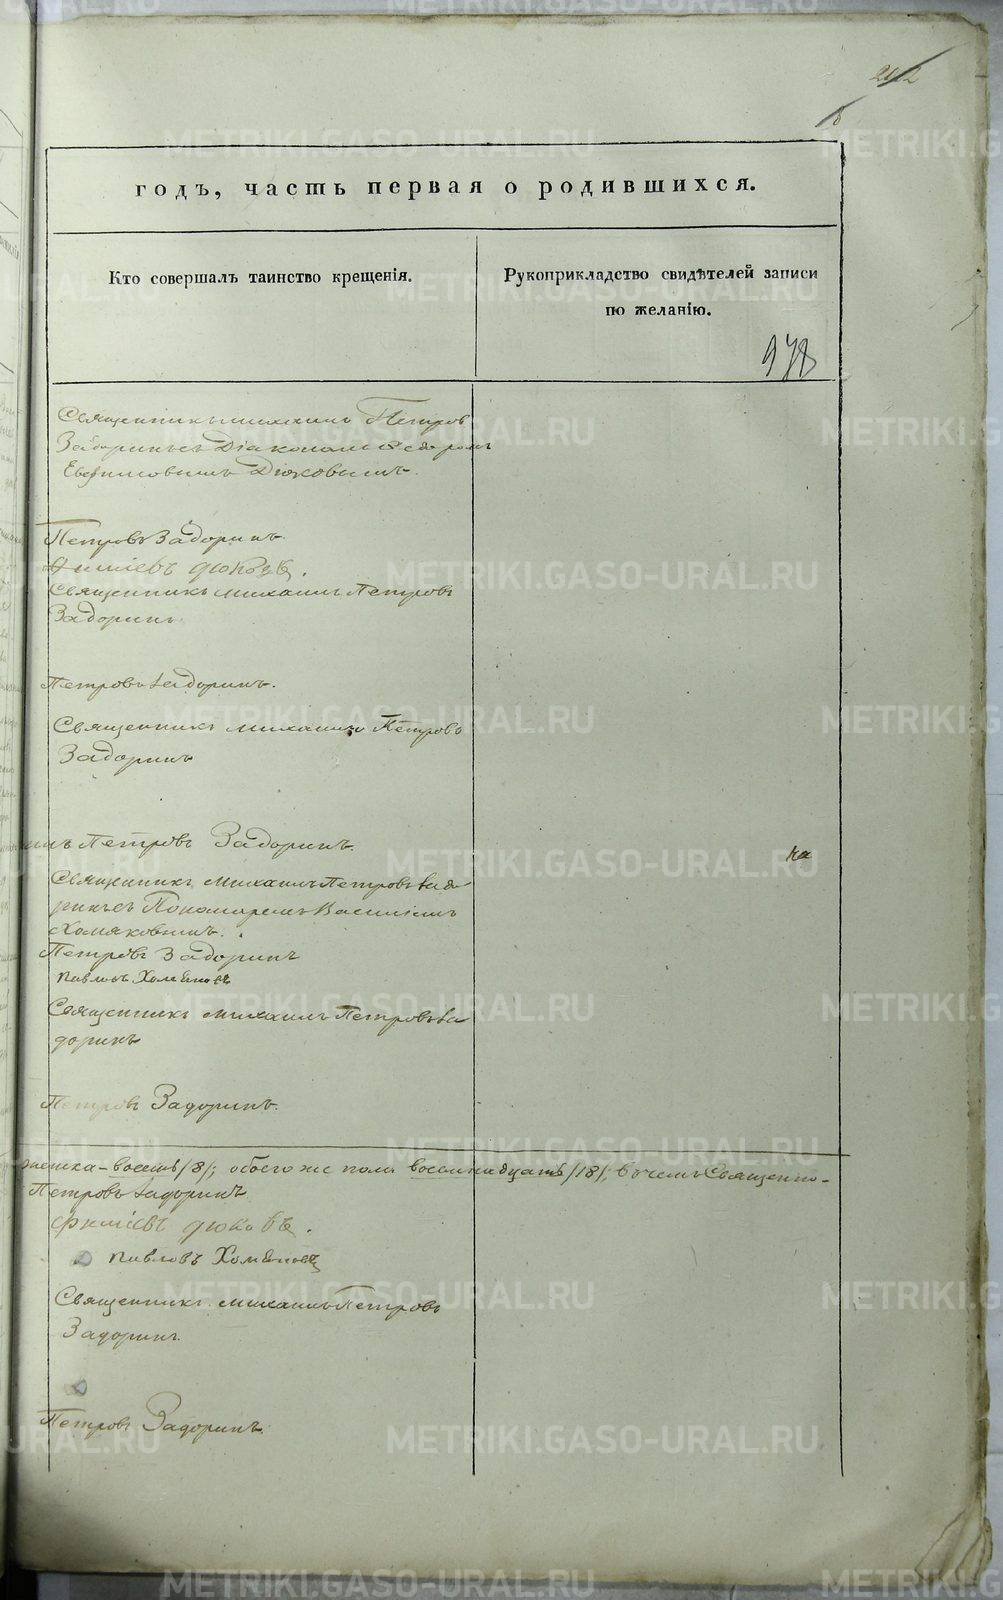 242
годъ, часть первая о родившихся.
Кто совершалъ таинство крещенія.
Рукоприкладство свидѣтелей записи
по желанію.
978
Священникъ Михаилъ Петровъ
Задоринъ съ Діакономъ Ѳедоромъ
Евфимовымъ Дюковымъ.
Петровъ Задоринъ.
Дюковъ.
Священникъ Михаилъ Петровъ
Задоринъ
Петровъ Задоринъ.
Священникъ Михаилъ Петровъ
Задоринъ
Петровъ Задоринъ.
Священникъ Михаилъ Петровъ Задо-
ринъ съ Пономаремъ Василіемъ
Хомяковымъ.
Петровъ Задоринъ
Павловъ Хомяковъ
Священникъ Михаилъ Петровъ За
доринъ
Петровъ Задоринъ.
восемь /8/; обоего же пола восемнадцать /18/; въ чемъ Священно-
Петровъ Задоринъ
Дюковъ.
Павловъ Хомяковъ
Священникъ Михаилъ Петровъ
Задоринъ.
Петровъ Задоринъ.
METRIKI.GASO-URAL.RU